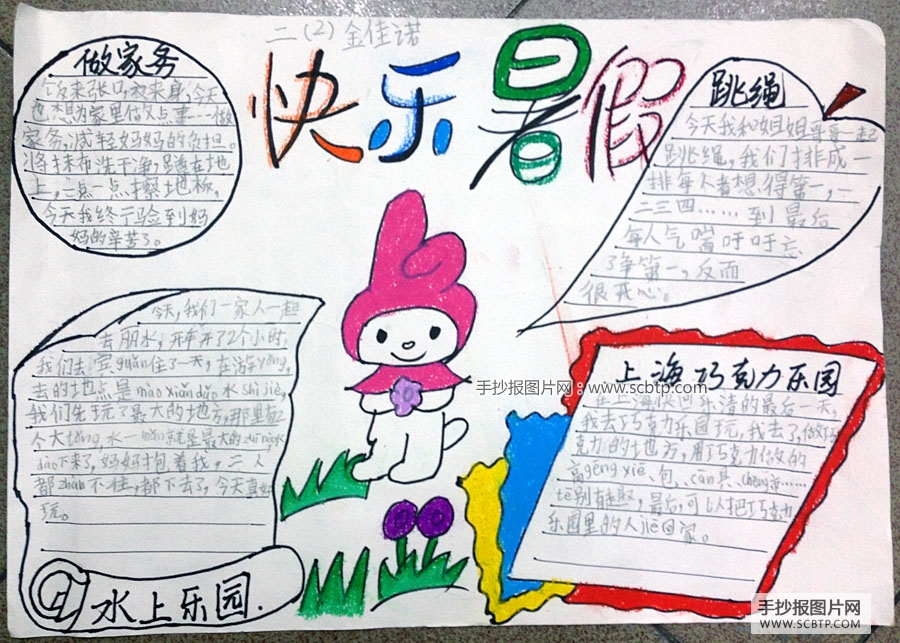 二(2) 金佳诺
快乐暑假
做家务
饭来张口衣来身,今天
也想为家里做点事——做
家务,减轻妈妈的负担。
将抹布洗干净,蹲在地
上,一点一点擦地板,
今天我终于验到妈
妈的辛苦了。
跳绳
今天我和姐姐哥哥一起
跳绳,我们排成一
排每人者想得第一,一
二三四……到最后
每人气喘吁吁忘
了争第一,反而
很开心。
今天,我们一家人一起
去丽水,开车开了2个小时,
我们去宾guǎn住了一天,在游yǒng
去的地点是mào xiǎn dǎo水shì jiè,
我们先玩了最大的地方,那里有
个大tǒng水一mǎn就是最大的
dào下来了,妈妈抱着我,二人
都zhàn不住,都下去了,今天真好
玩。
水上乐园.
上海巧克力乐园
在上海快回乐清的最后一天,
我去巧克力乐园玩,我去了,做巧
克力的地方,用巧克力做的
高gēng xié、包、cān具、chéng堡……
tè别有趣,最后,可以把巧克力
乐园里的人jiè回家。
手抄报图片网:www.scbtp.com
手抄报图片网
WWW.SCBTP.COM